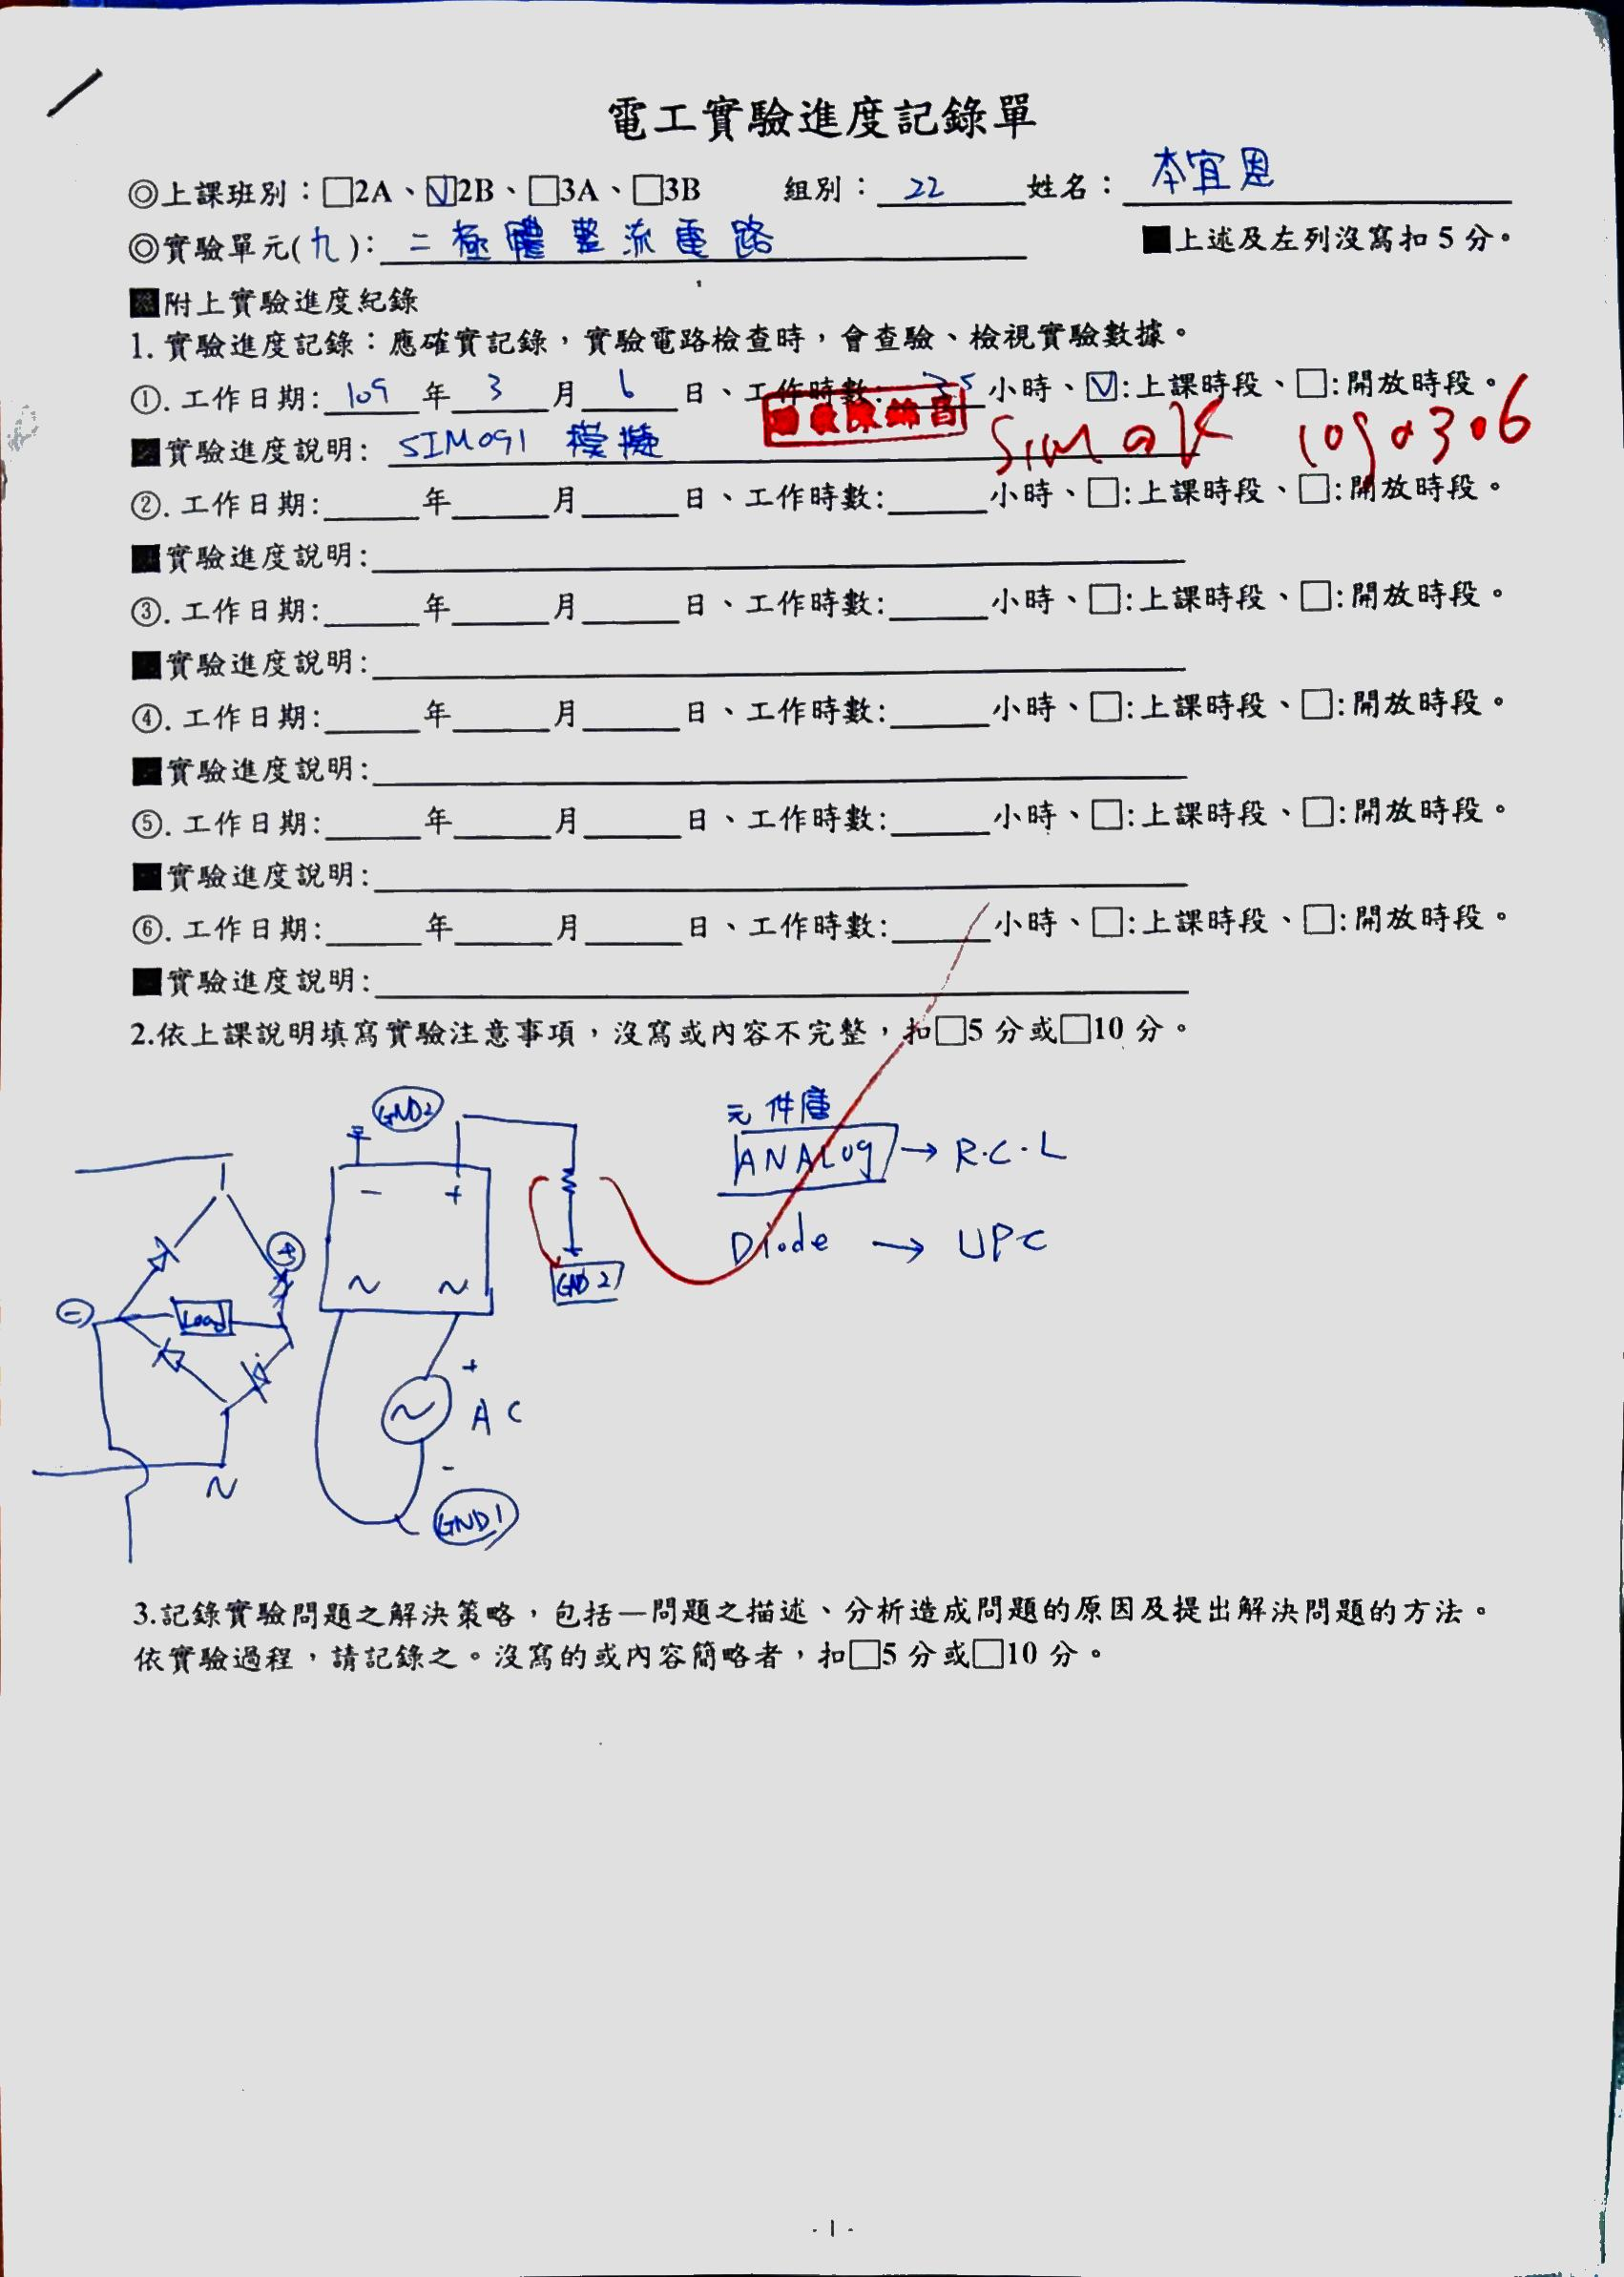 電工實驗進度記錄單
◎上課班別：□2A、☑2B、□3A、□3B 組別：22 姓名：本宜恩
◎實驗單元(九)：二極體整流電路 ■上述及左列沒寫扣5分。
■附上實驗進度紀錄
1.實驗進度記錄：應確實記錄，實驗電路檢查時，會查驗、檢視實驗數據。
①.工作日期:109年3月6日、工作時數:小時、☑:上課時段、□:開放時段。
■實驗進度說明:SIM091 模擬 SIM OK 1090306
②.工作日期:____年____月____日、工作時數:____小時、□:上課時段、□:開放時段。
■實驗進度說明:
③.工作日期:____年____月____日、工作時數:____小時、□:上課時段、□:開放時段。
■實驗進度說明:
④.工作日期:____年____月____日、工作時數:____小時、□:上課時段、□:開放時段。
■實驗進度說明:
⑤.工作日期:____年____月____日、工作時數:____小時、□:上課時段、□:開放時段。
■實驗進度說明:
⑥.工作日期:____年____月____日、工作時數:____小時、□:上課時段、□:開放時段。
■實驗進度說明:
2.依上課說明填寫實驗注意事項，沒寫或內容不完整，扣□5分或□10分。
GND2
元件庫
ANALog → R.C.L
- +
Diode → UPC
+
~ ~
GND2
- Load
+
~ AC
-
~
GND1
3.記錄實驗問題之解決策略，包括—問題之描述、分析造成問題的原因及提出解決問題的方法。
依實驗過程，請記錄之。沒寫的或內容簡略者，扣□5分或□10分。
- 1 -